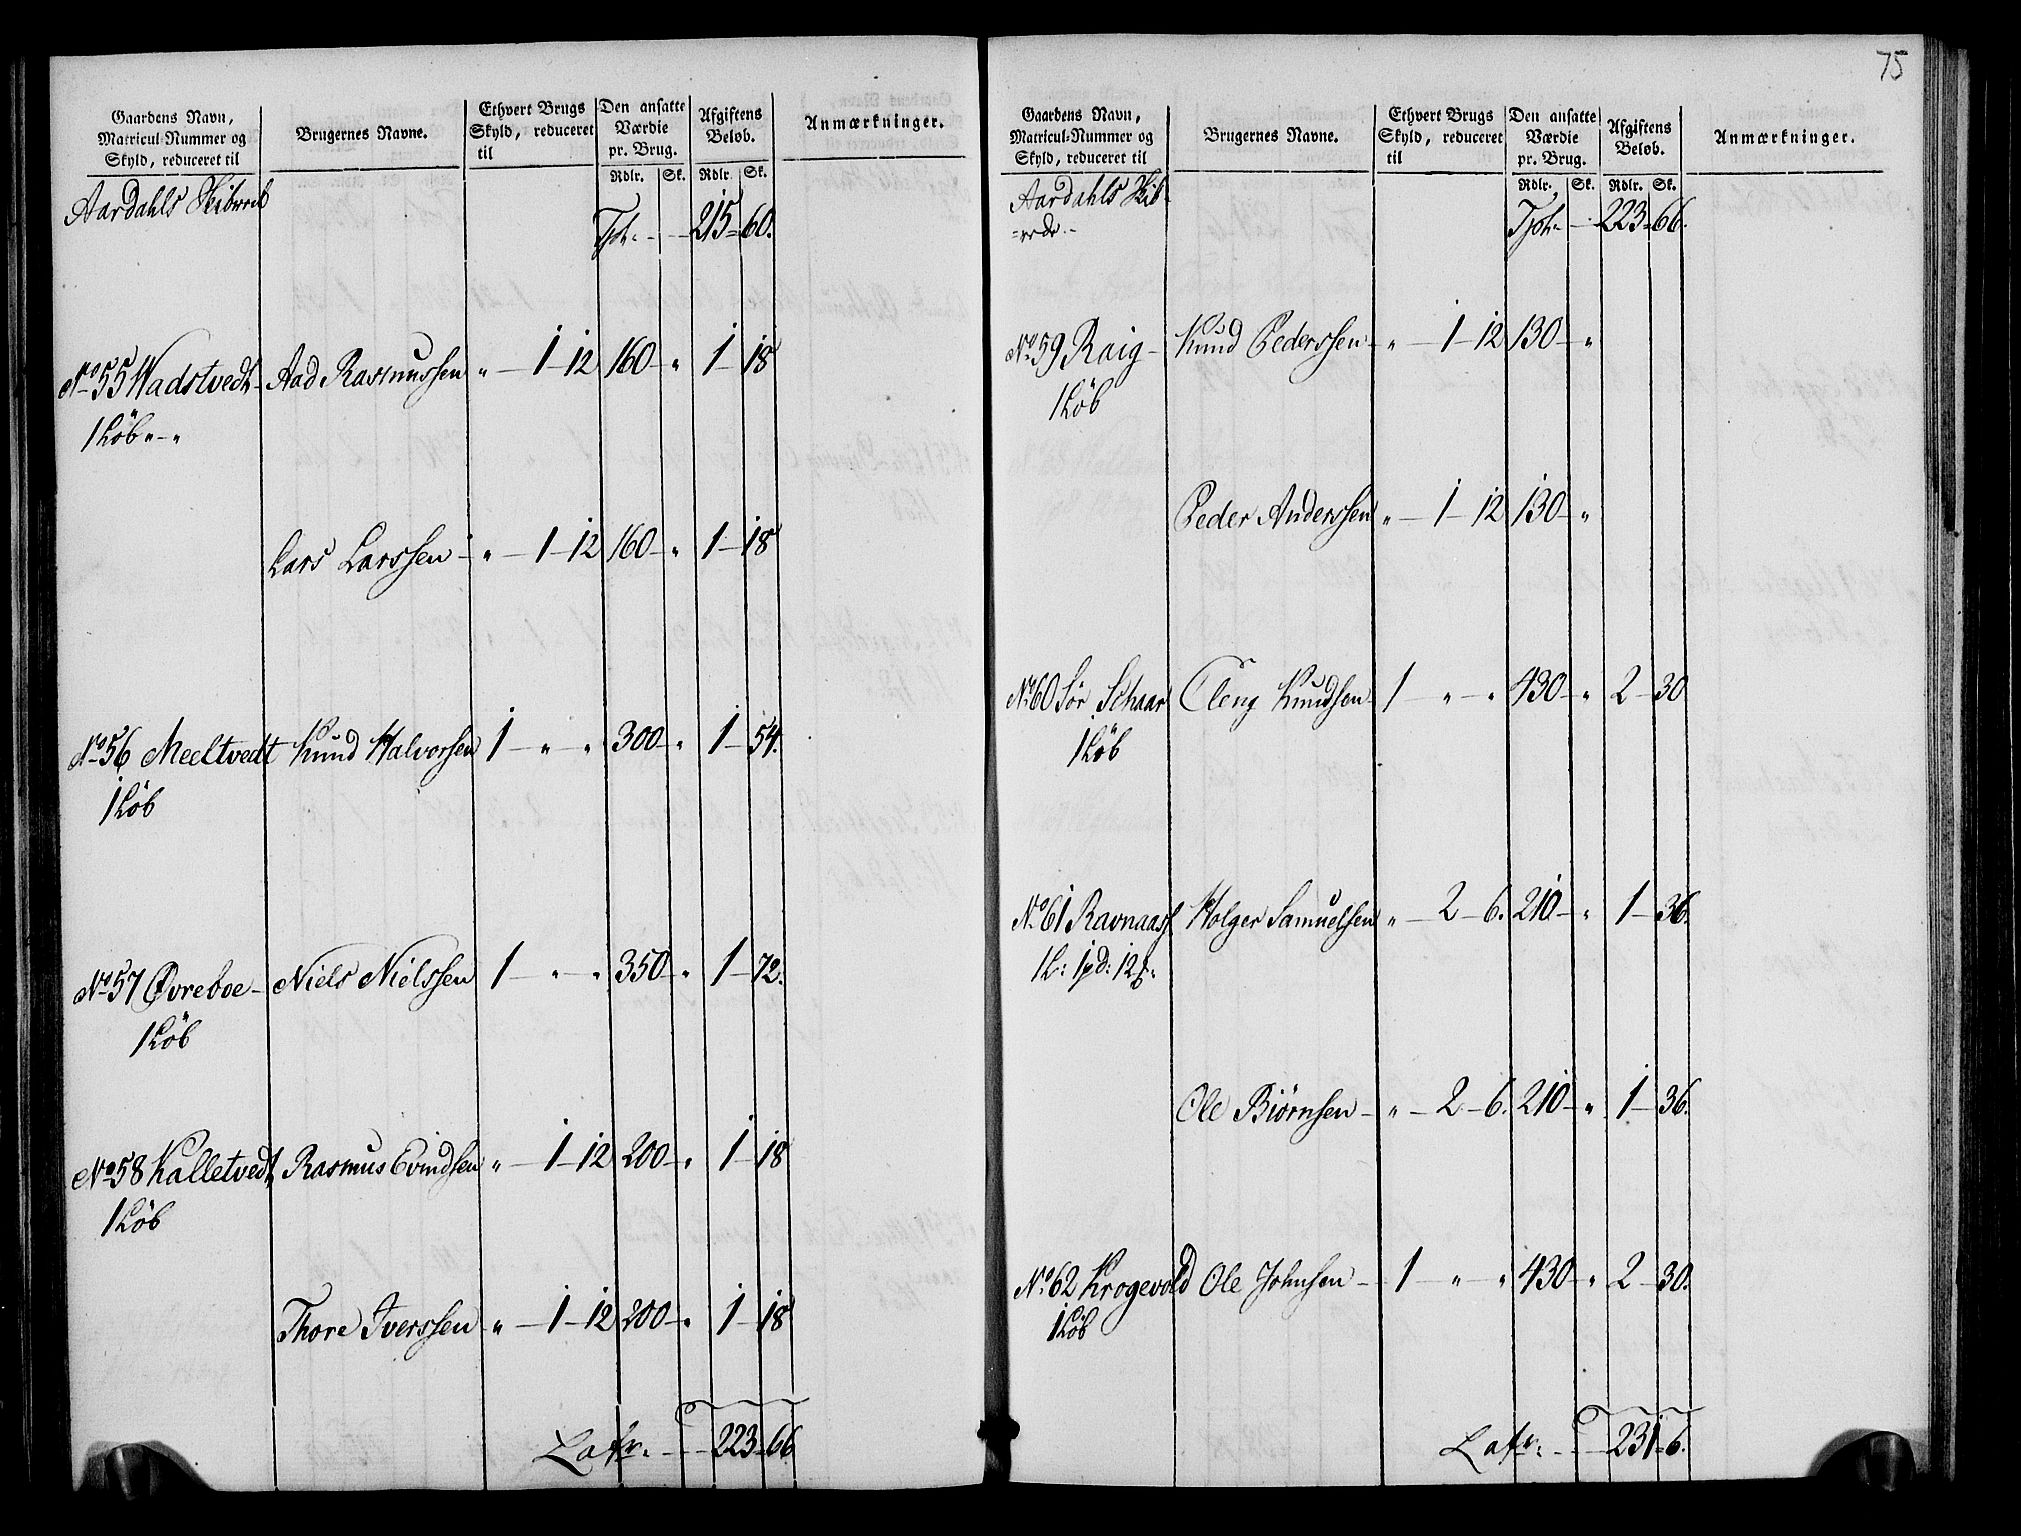 75
Gaardens Navn, Matricul-Nummer og Skyld, reduceret til | Brugernes Navne. | Ethvert Brugs Skyld, reduceret til | Den ansatte Værdie pr. Brug. | Afgiftens Beløb. | Anmærkninger.
Rdlr. | Sk. | Rdlr. | Sk.
Aardahls Skibrede
Tpt. - - 215 = 60.
No 55 Wadstvedt - Aad Rasmussen „ - 1 - 12 160 - „ 1 - 18
1 Løb „ - „
Lars Larssen - „ - 1 - 12 160 - „ 1 - 18
No 56 Meeltvedt Knud Halvorsen 1 - „ - „ 300 - „ 1 - 54.
1 Løb
No 57 Øvreboe - Niels Nielssen 1 - „ - „ 350 - „ 1 - 72.
1 Løb
No 58 Kalletvedt Rasmus Evindsen „ - 1 - 12 200 - „ 1 - 18
1 Løb
Thore Iverssen - „ - 1 - 12 200 - „ 1 - 18
Lafr. - - 223 = 66
Gaardens Navn, Matricul-Nummer og Skyld, reduceret til | Brugernes Navne. | Ethvert Brugs Skyld, reduceret til | Den ansatte Værdie pr. Brug. | Afgiftens Beløb. | Anmærkninger.
Rdlr. | Sk. | Rdlr. | Sk.
Aardahls Skib-
=rede.-
Tpt. - - 223 = 66.
No 59 Raig - Knud Pederssen - „ - 1 - 12 130 - „
1 Løb
Peder Anderssen „ - 1 - 12 130 - „
No 60 Sør Schaar Eleng Knudsen - 1 „ - „ 430 - „ 2 - 30
1 Løb
No 61 Ravnaas Holger Samuelsen „ - 2 - 6. 210 - „ 1 - 36.
1 L: 1 pd: 12
Ole Biørnsen - „ - 2 - 6. 210 - „ 1 - 36.
No 62 Krogevold Ole Johnsen - 1 „ - „ 430 - „ 2 - 30.
1 Løb
Lafr. - - 231 = 6.